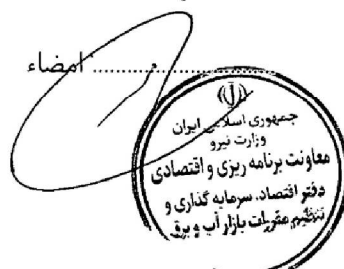 امضاء ..............
جمهوری اسلامی ایران
وزارت نیرو
معاونت برنامه ریزی و اقتصادی
دفتر اقتصاد، سرمایه گذاری و
تنظیم مقررات بازار آب و برق